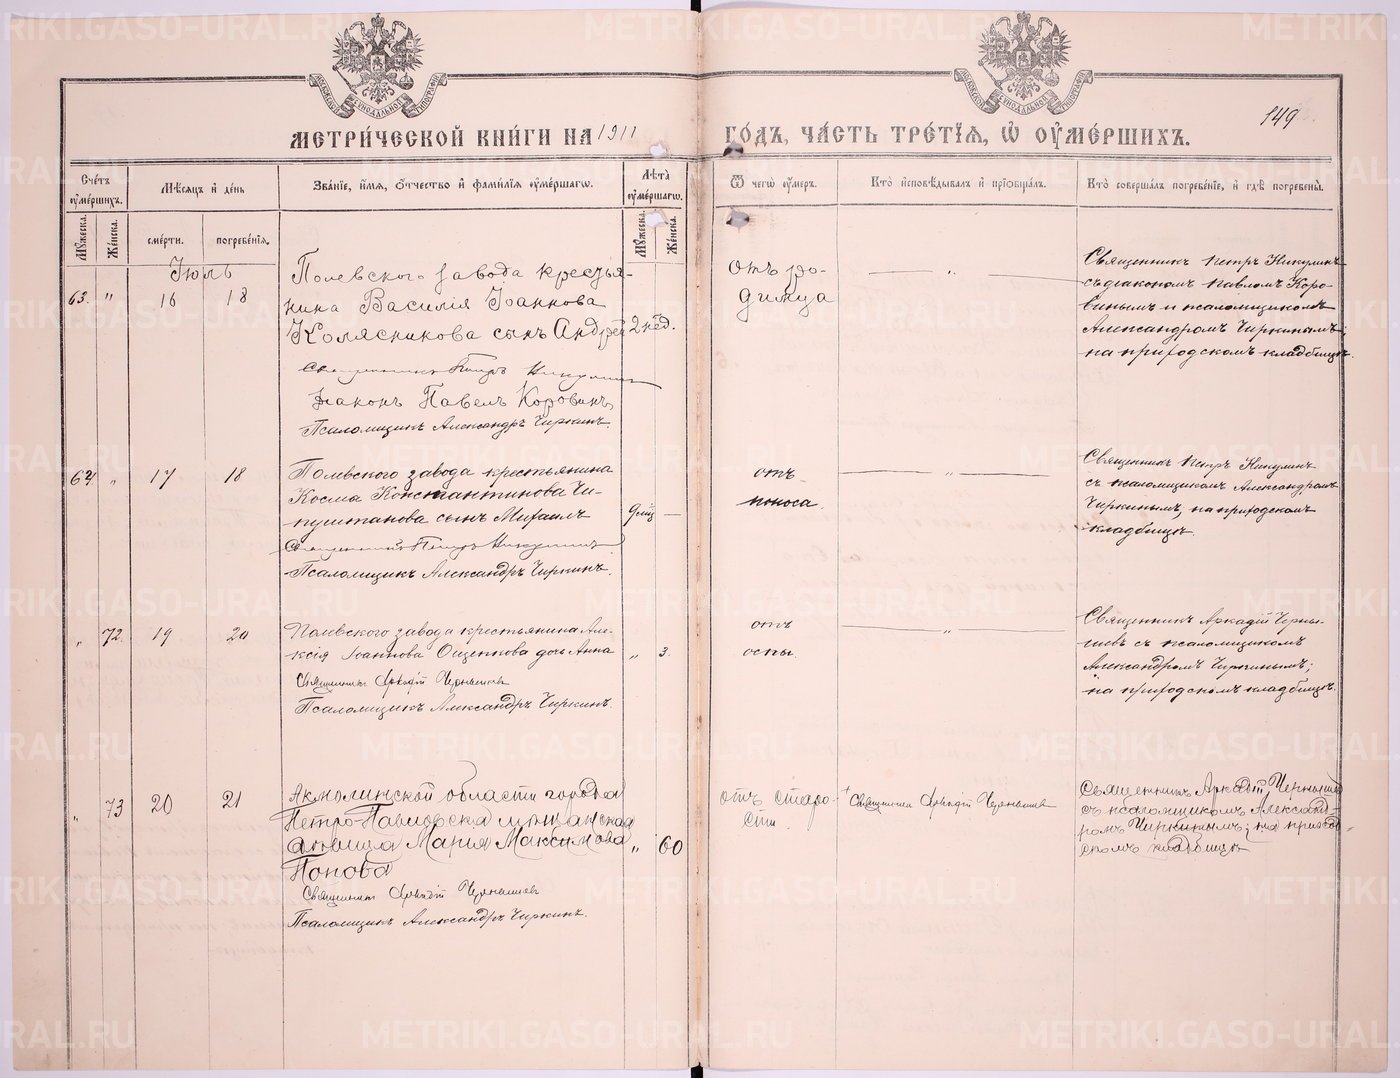 МЕТРИЧЕСКОЙ КНИГИ НА 1911
ГОДЪ, ЧАСТЬ ТРЕТІЯ, Ѡ ОУМЕРШИХЪ.
149
Счетъ оумершихъ.
Мѣсяцъ и день
Званіе, имя, отчество и фамилія оумершагѡ.
Лѣта оумершагѡ.
Ѿ чегѡ оумеръ.
Кто исповѣдывалъ и пріобщалъ.
Кто совершалъ погребеніе, и гдѣ погребены.
Мужеска.
Женска.
смерти.
погребенія.
Мужеска.
Женска.
Іюль
63. " 16 18
Полевского завода крестья-
нина Василія Іоаннова
Колясникова сынъ Андрей 2 нед.
Священникъ Петръ Никулинъ
Діаконъ Павелъ Коровинъ
Псаломщикъ Александръ Чиркинъ.
отъ ро-
димца
— " —
Священникъ Петръ Никулинъ
съ діакономъ Павломъ Коро-
винымъ и псаломщикомъ
Александромъ Чиркинымъ;
на приходскомъ кладбищѣ.
64 " 17 18
Полевского завода крестьянина
Косма Константинова Чи-
пуштанова сынъ Михаилъ
Священникъ Петръ Никулинъ
Псаломщикъ Александръ Чиркинъ.
9 мѣс —
отъ
поноса.
— " —
Священникъ Петръ Никулинъ
съ псаломщикомъ Александромъ
Чиркинымъ, на приходскомъ
кладбищѣ.
" 72. 19 20
Полевского завода крестьянина Але-
ксія Іоаннова Ощепкова дочь Анна " 3.
Священникъ Аркадій Чернышевъ
Псаломщикъ Александръ Чиркинъ.
отъ
оспы.
— " —
Священникъ Аркадій Черны-
шевъ съ псаломщикомъ
Александромъ Чиркинымъ;
на приходскомъ кладбищѣ.
" 73 20 21
Акмолинской области города
Петро-Павловска мѣщанская
дѣвица Марія Максимова " 60
Попова
Священникъ Аркадій Чернышевъ
Псаломщикъ Александръ Чиркинъ.
отъ старо-
сти.
Священникъ Аркадій Чернышевъ
Священникъ Аркадій Чернышев
съ псаломщикомъ Александ-
ромъ Чиркинымъ; на приход
скомъ кладбищѣ
METRIKI.GASO-URAL.RU